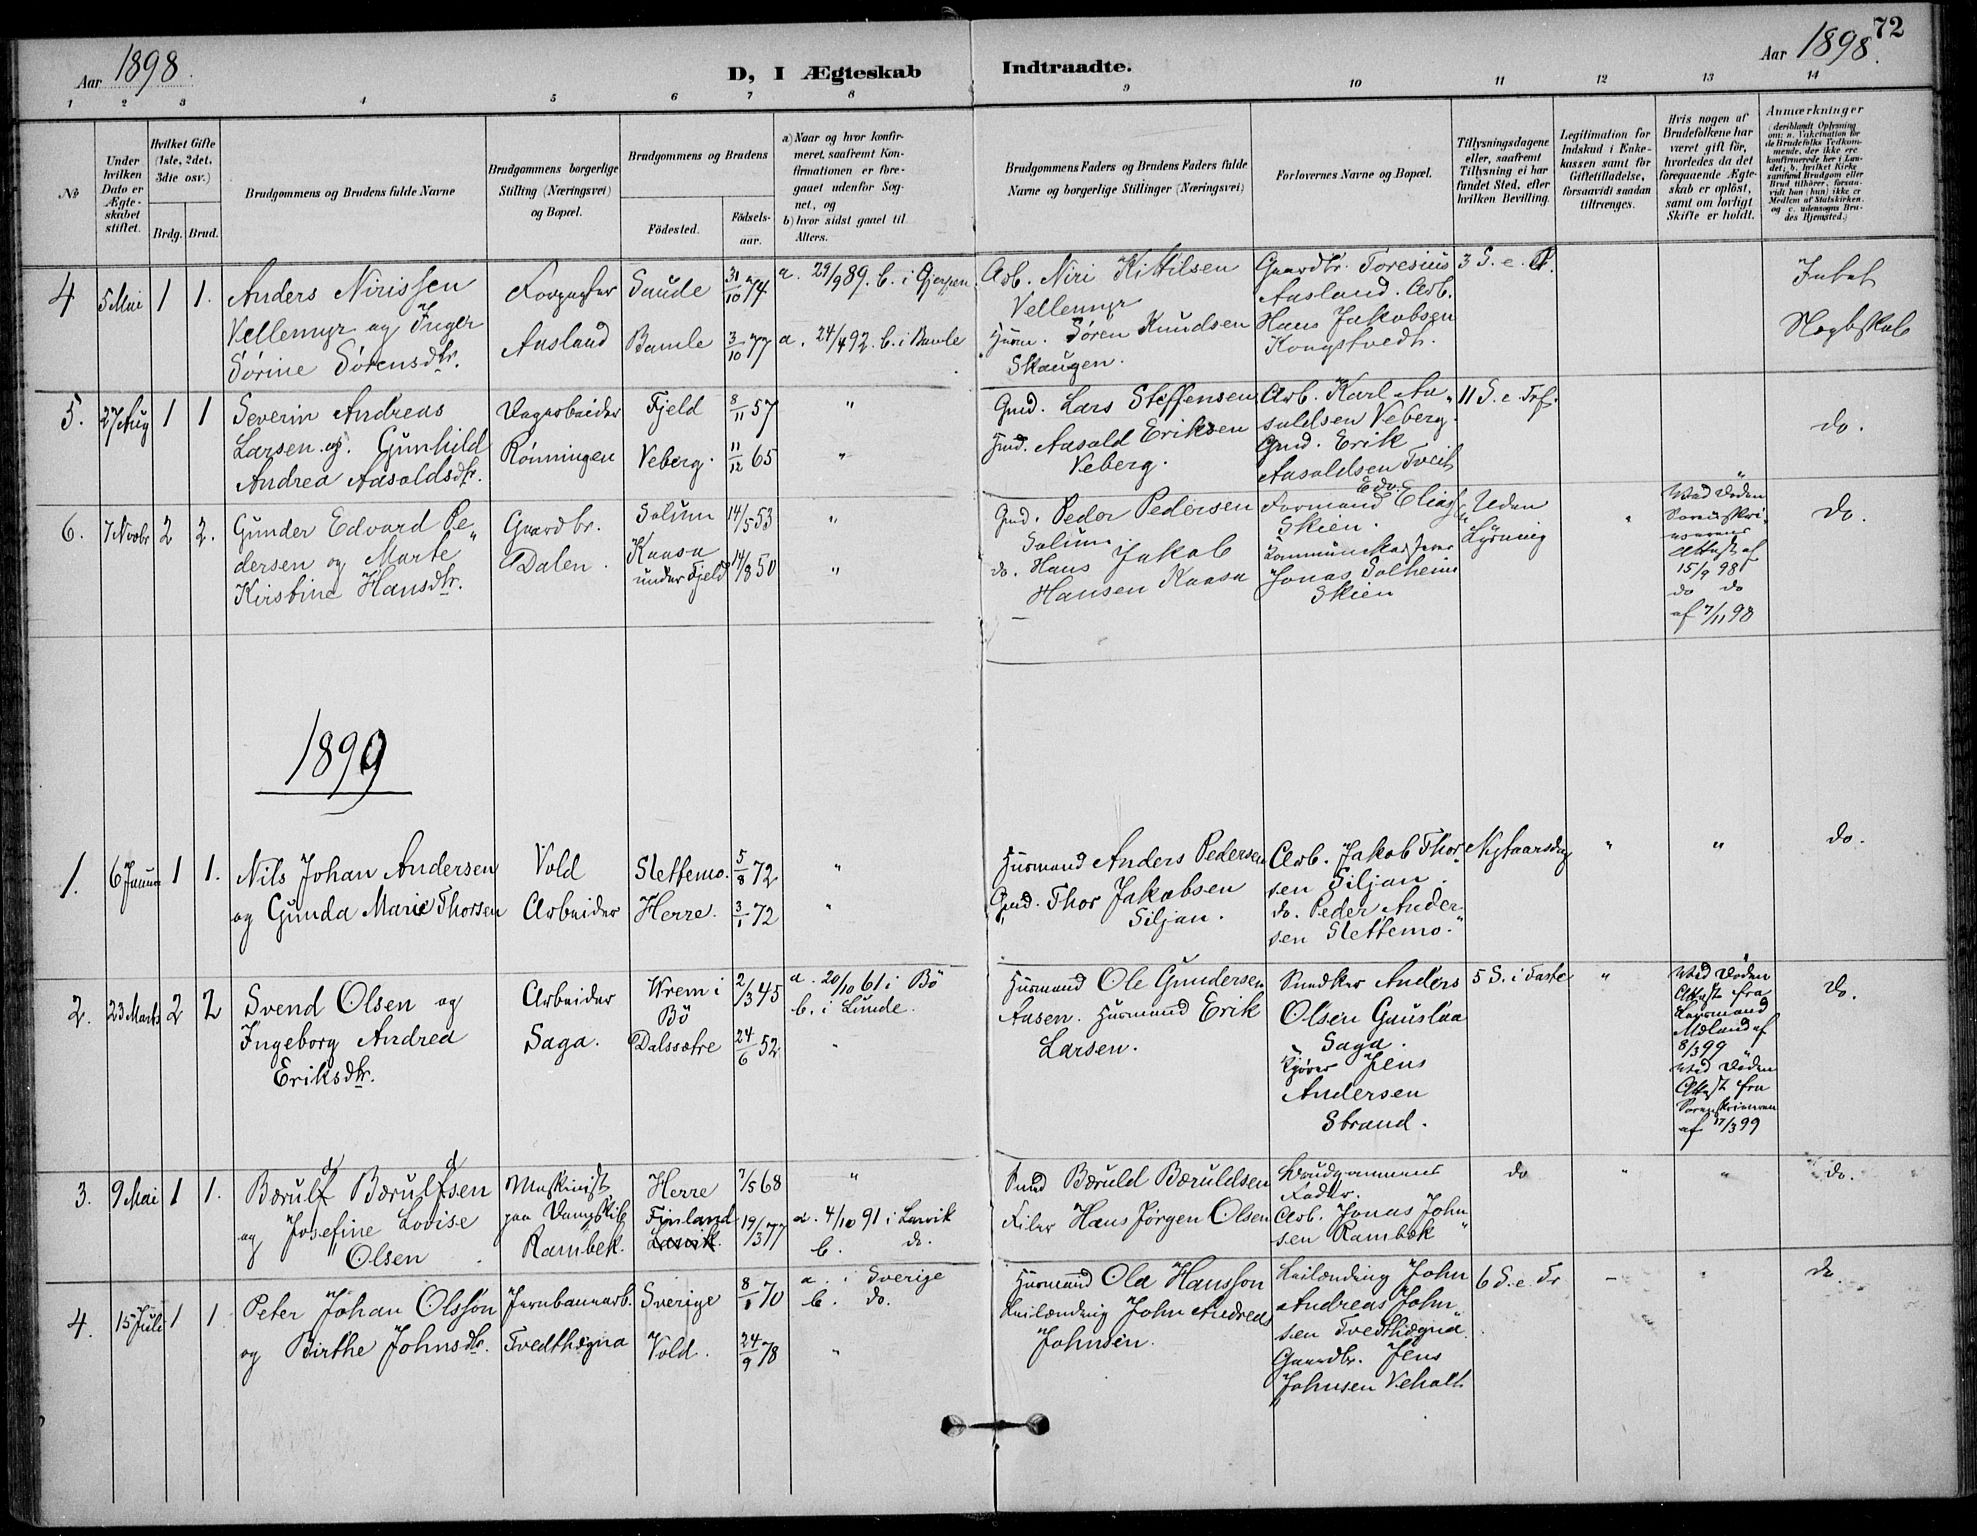 72
Aar 1898.
D, I Ægteskab Indtraadte.
Aar 1898.
1 2 3 4 5 6 7 8 9 10 11 12 13 14
No
Under hvilken Dato er Ægteskabet stiftet.
Hvilket Gifte (1ste, 2det, 3die osv.)
Brdg. Brud.
Brudgommens og Brudens fulde Navne
Brudgommens borgerlige Stilling (Næringsvei) og Bopæl.
Brudgommens og Brudens
Födested.
Födselsaar.
a) Naar og hvor konfirmeret, saafremt Konfirmationen er foregaaet udenfor Sognet, og
b) hvor sidst gaaet til Alters.
Brudgommens Faders og Brudens Faders fulde Navne og borgerlige Stillinger (Næringsvei)
Forlovernes Navne og Bopæl.
Tillysningsdagene eller, saafremt Tillysning ei har fundet Sted, efter hvilken Bevilling.
Legitimation for Indskud i Enkekassen samt for Giftetilladelse, forsaavidt saadan tiltrænges.
Hvis nogen af Brudefolkene har været gift för, hvorledes da det foregaaende Ægteskab er oplöst, samt om lovligt Skifte er holdt.
Anmærkninger
(deriblandt Oplysning om: a. Vakcination for de Brudefolks Vedkommende, der ikke ere konfirmerede her i Landet; b. hvilket Kirkesamfund Brudgom eller Brud tilhörer, forsaavidt han (hun) ikke er Medlem af Statskirken, og c. udensogns Brudes Hjemsted.)
4 5 Mai 1 1. Anders Nirissen
Vellemyr og Inger
Sørine Sørensdtr.
Forpagter
Aasland
Saude 31/10 74 a. 29/9 89. b. i Gjerpen.
Bamle 3/10 77 a. 24/4 92. b. i Bamle
Arb. Niri Kittilsen
Vellemyr
Husm. Søren Knudsen
Skaugen.
Gaardbr. Toresius
Aasland. Arb.
Hans Jakobsen
Kongstvedt.
3 S. e. P.
Intet
Slegtskab
5. 27 Aug 1 1 Severin Andreas
Larsen og Gunhild
Andrea Aasoldsdtr.
Dagarbeider
Rønningen
Fjeld 8/11 57 "
Veberg. 11/12 65 "
Gmd. Lars Steffensen
Gmd. Aasold Eriksen
Veberg.
Arb. Karl Aa"
soldsen Veberg.
Gmd. Erik
Aasoldsen Tveit
11 S. e. Tref.
do.
6. 7 Novbr 2 2. Gunder Edvard Pe"
dersen og Marte
Kirstine Hansdtr.
Gaardbr.
Dalen.
Solum 14/5 53 "
Kaasa
under Fjeld 14/8 50 "
Gmd. Peder Pedersen
Solum
do. Hans Jakob
Hansen Kaasa
Formand Edv. Elias
Skien.
Jonas Solheim
Skien
Uden
Lysning
"
Ved Døden
Sorenskri-
verens
Attest af
15/9 98
do do
af 7/11 98
do.
1899
1. 6 Januar 1 1. Nils Johan Andersen
og Gunda Marie Thorsen
Vold
Arbeider
Slettemo. 5/8 72 "
Herre. 3/1 72 "
Husmand Anders Pedersen
Gmd. Thor Jakobsen
Siljan.
Arb. Jakob Thor-
sen Siljan.
do. Peder Ander-
sen Slettemo."
Nytaarsdag " "
do.
2. 23 Marts 2 2 Svend Olsen og
Ingeborg Andrea
Eriksdtr.
Arbeider
Saga.
Vrem i
Bö 2/3 45
Dalssætre 24/6 52
a. 20/10 61 i Bö
b. i Lunde.
Husmand Ole Gundersen
Aasen. Husmand Erik
Larsen.
Snedker Anders
Olsen Gauslaa
Saga.
Kjører Jens
Andersen
Strand.
5 S. i Faste "
Ved Døden
Attest fra
Lensmand
Mæland af
8/3 99
Ved Døden
Attest fra
Sorenskriveren
af 17/3 99
do.
3. 9 Mai 1 1. Bæruld Bæruldsen
og Josefine Lovise
Olsen
Maskinist
paa Dampskib
Rambek.
Herre 7/5 68 "
Finland
Larvik. 19/3 77 a. 4/10 91 i Larvik
b. do.
Gmd Bæruld Bæruldsen
Filer Hans Jörgen Olsen
Brudgommens
Fader.
Arb. Jonas John
sen Rambæk "
do " " do.
4. 15 Juli 1 1. Peter Johan Olsson
og Birthe Johnsdtr.
Jernbanearb.
Tvedthøgna
Sverige 8/1 70 a. i Sverige
b. do.
Vold. 24/9 78 "
Husmand Ola Hansson
Leilænding John Andreas
Johnsen.
Leilænding John
Andreas John"
sen Tvedthøgna.
Gaardbr. Jens
Johnsen Veholt
6 S. e. Tr – "
do.